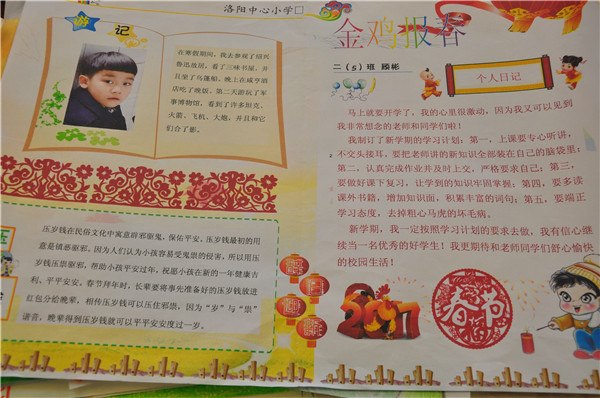 洛阳中心小学
游记
在寒假期间，我去参观了绍兴
鲁迅故居，看了三味书屋，并
且坐了乌篷船，晚上在咸亨酒
店吃了晚饭。第二天游玩了军
事博物馆，看到了许多坦克、
火箭、飞机、大炮，并且和它
们合了影。
压岁钱在民俗文化中寓意辟邪驱鬼，保佑平安。压岁钱最初的用
意是镇恶驱邪。因为人们认为小孩容易受鬼祟的侵害，所以用压
岁钱压祟驱邪，帮助小孩平安过年，祝愿小孩在新的一年健康吉
利、平平安安。春节拜年时，长辈要将事先准备好的压岁钱放进
红包分给晚辈，相传压岁钱可以压住邪祟，因为“岁”与“祟”
谐音，晚辈得到压岁钱就可以平平安安度过一岁。
压
金鸡报春
二（5）班 顾彬
个人日记
马上就要开学了，我的心里很激动，因为我又可以见到
我非常想念的老师和同学们啦！
我制订了新学期的学习计划：第一，上课要专心听讲，
不交头接耳，要把老师讲的新知识全部装在自己的脑袋里；
第二，认真完成作业并及时上交，严格要求自己；第三，
要做好课下复习，让学到的知识牢固掌握；第四，要多读
课外书籍，增加知识面，积累丰富的词句；第五，要端正
学习态度，去掉粗心马虎的坏毛病。
新学期，我一定按照学习计划的要求去做，我有信心继
续当一名优秀的好学生！我更期待和老师同学们舒心愉快
的校园生活！
2017
春节